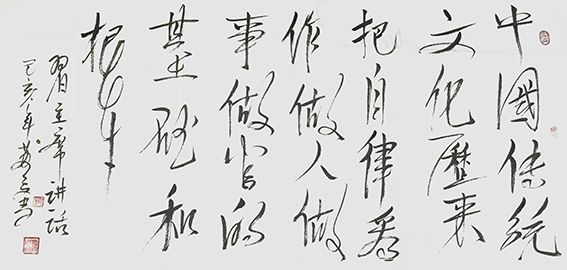 中國传统
文化歷来
把自律看
作做人做
事做官的
基础和
根本
習主席讲话
己亥年书